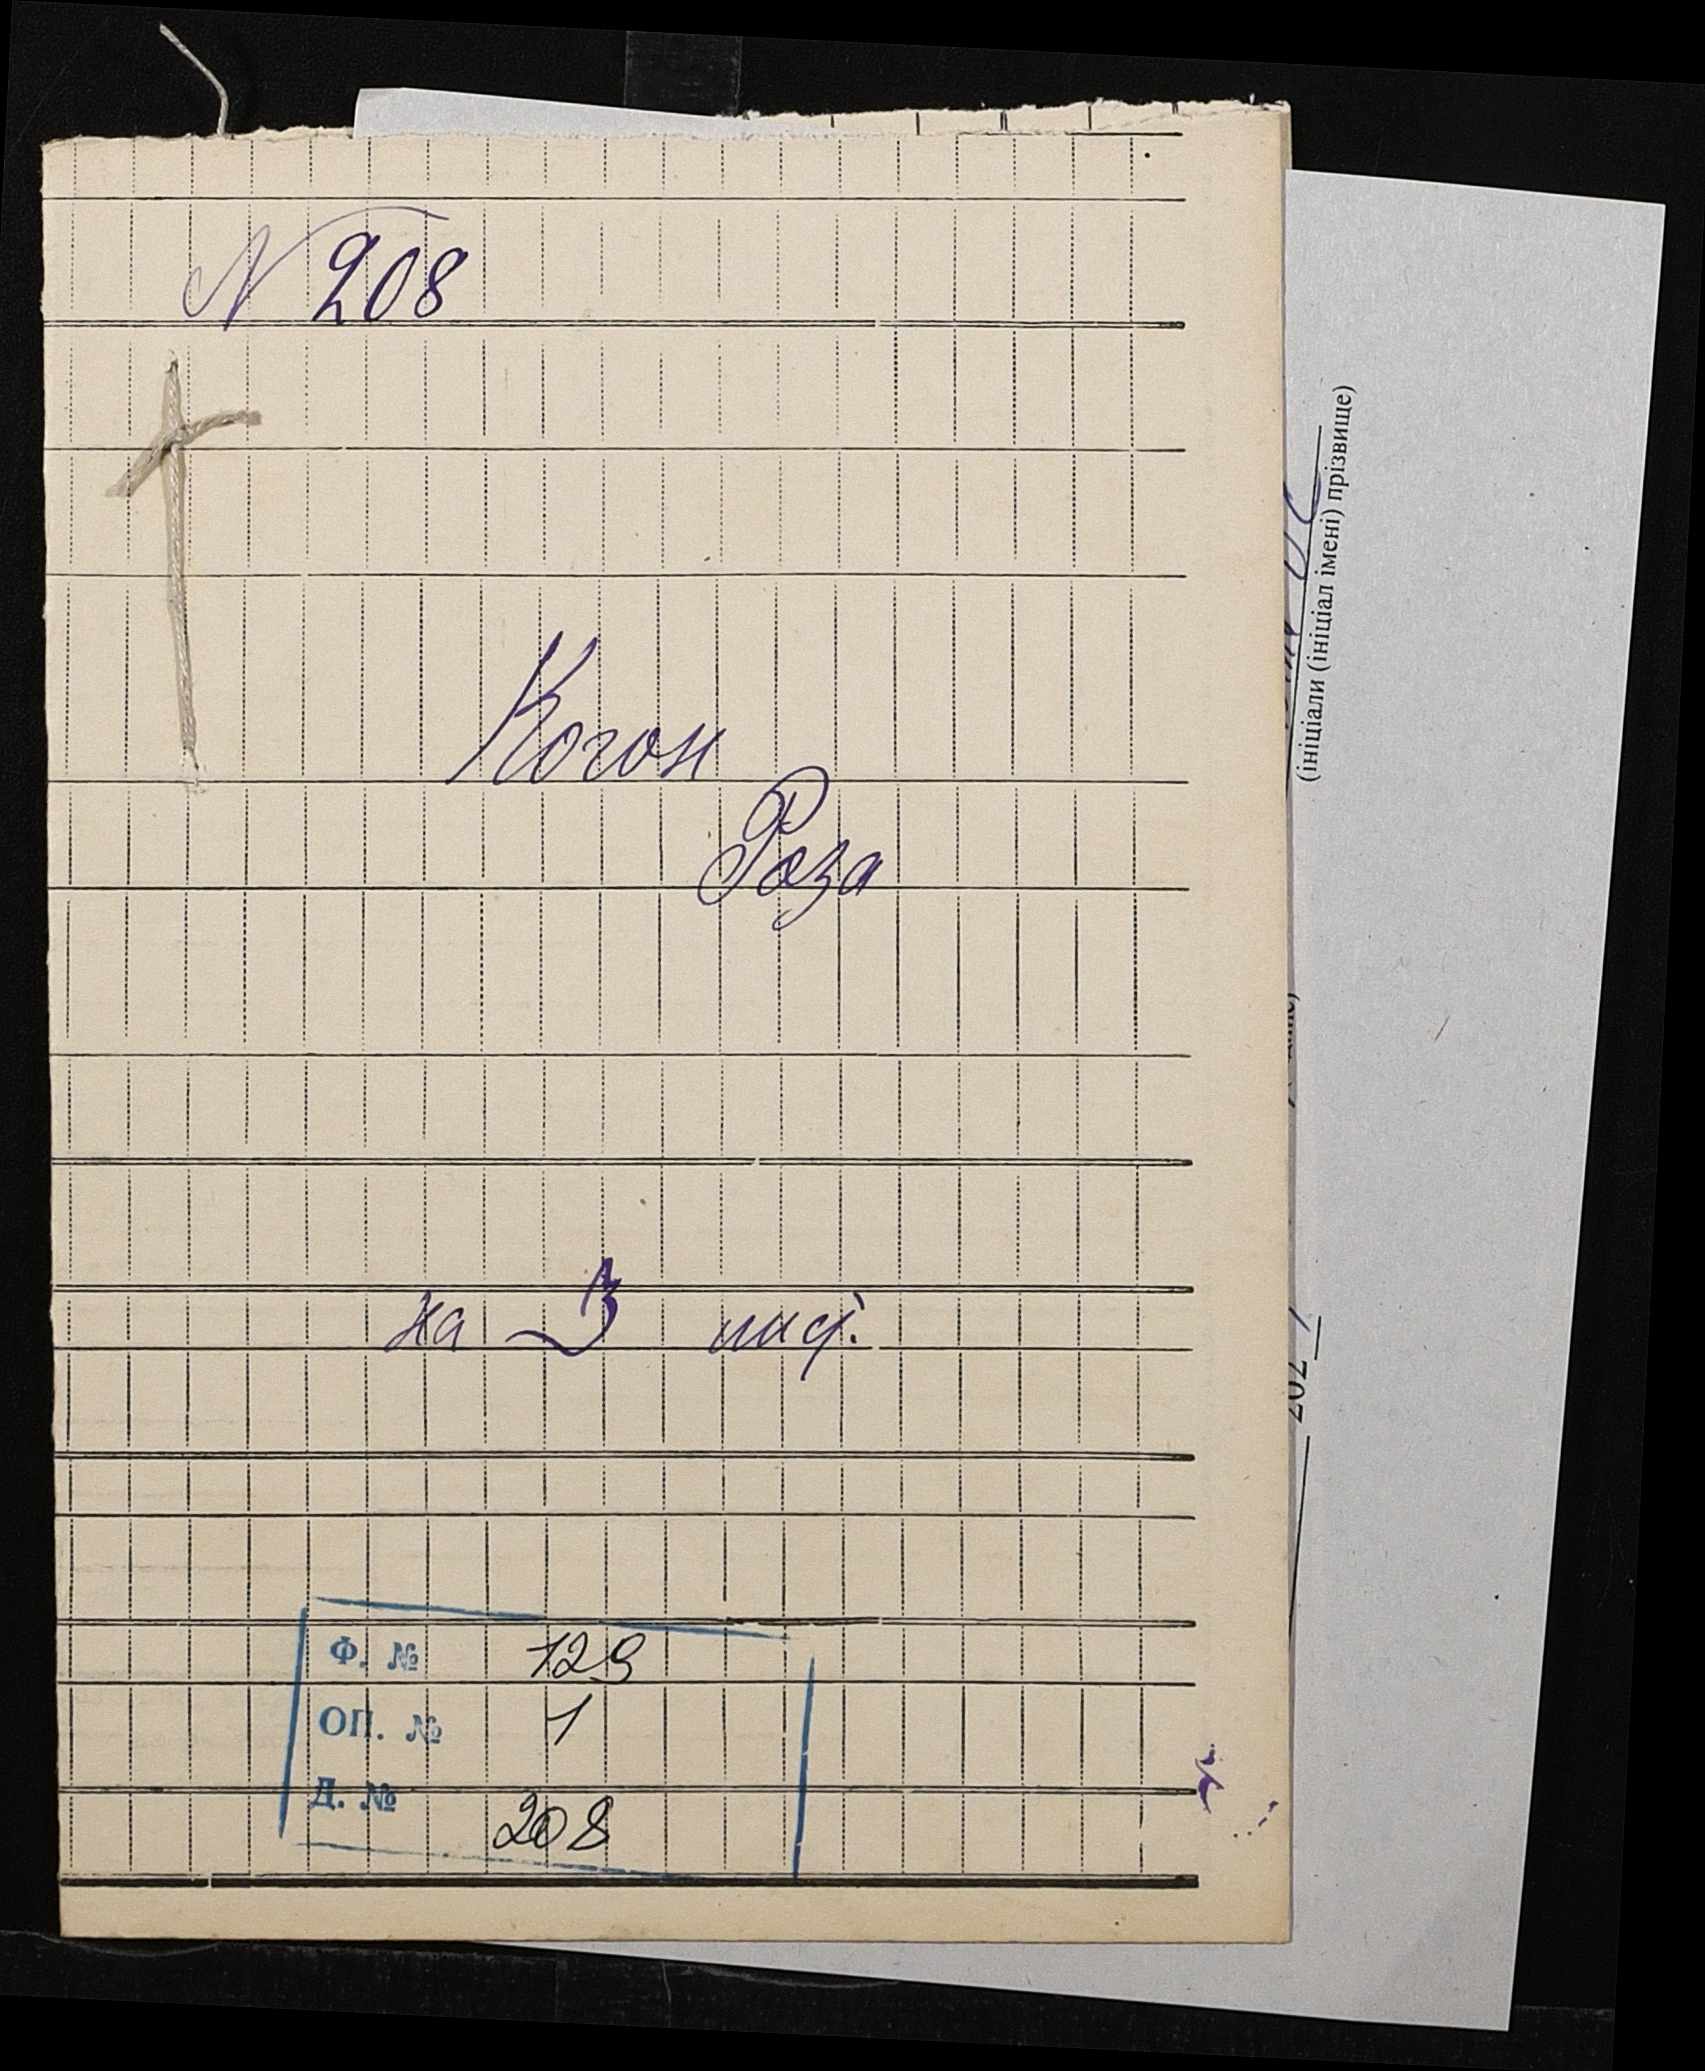 N 208
Когон
Роза
на 3 лист.
Ф. № 129
ОП. № 1
Д. № 208
(ініціали (ініціал імені) прізвище)
202